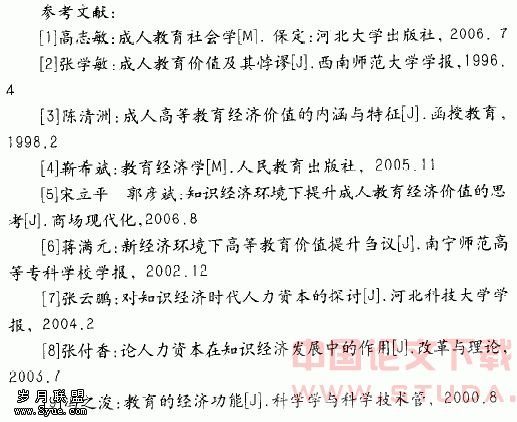 参考文献:
[1]高志敏:成人教育社会学[M]. 保定:河北大学出版社, 2006. 7
[2]张学敏:成人教育价值及其悖谬[J].西南师范大学学报,1996.
4
[3]陈清洲:成人高等教育经济价值的内涵与特征[J].函授教育,
1998.2
[4]靳希斌:教育经济学[M].人民教育出版社, 2005.11
[5]宋立平 郭彦斌:知识经济环境下提升成人教育经济价值的思
考[J].商场现代化,2006.8
[6]蒋满元:新经济环境下高等教育价值提升刍议[J].南宁师范高
等专科学校学报, 2002.12
[7]张云鹏:对知识经济时代人力资本的探讨[J].河北科技大学学
报, 2004.2
[8]张付香:论人力资本在知识经济发展中的作用[J].改革与理论,
2003.7
[9]冯之浚:教育的经济功能[J].科学学与科学技术管, 2000.8
中国论文下载
WWW.STUDA.
岁月联盟
www.Syue.com